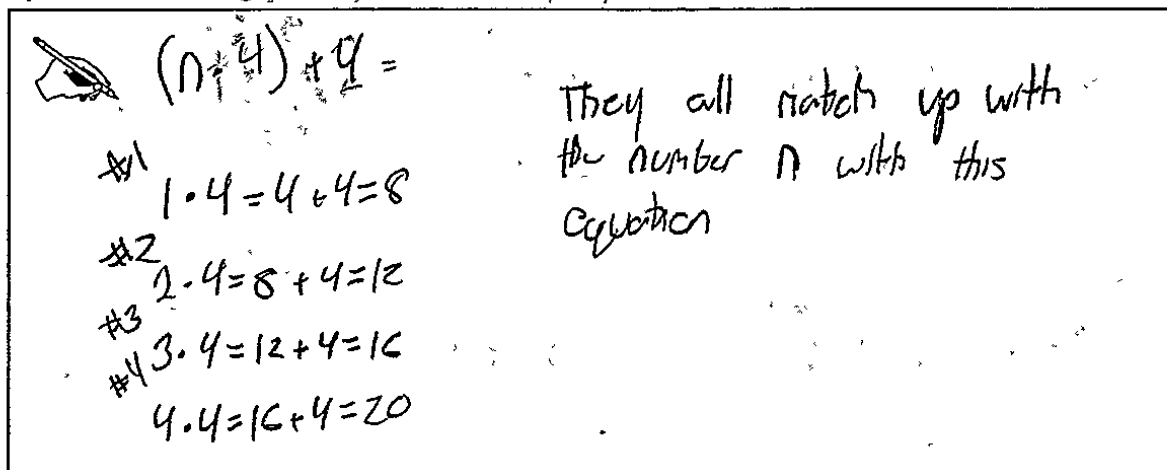 (n·4)+4=
#1
1·4=4+4=8
#2
2·4=8+4=12
#3
3·4=12+4=16
#4
4·4=16+4=20
They all match up with
the number n with this
equation